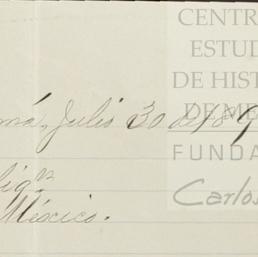 CENTR
ESTUD
DE HIST
DE ME
FUNDA
Carlos
má, Julio 30 de 189
lign
México.